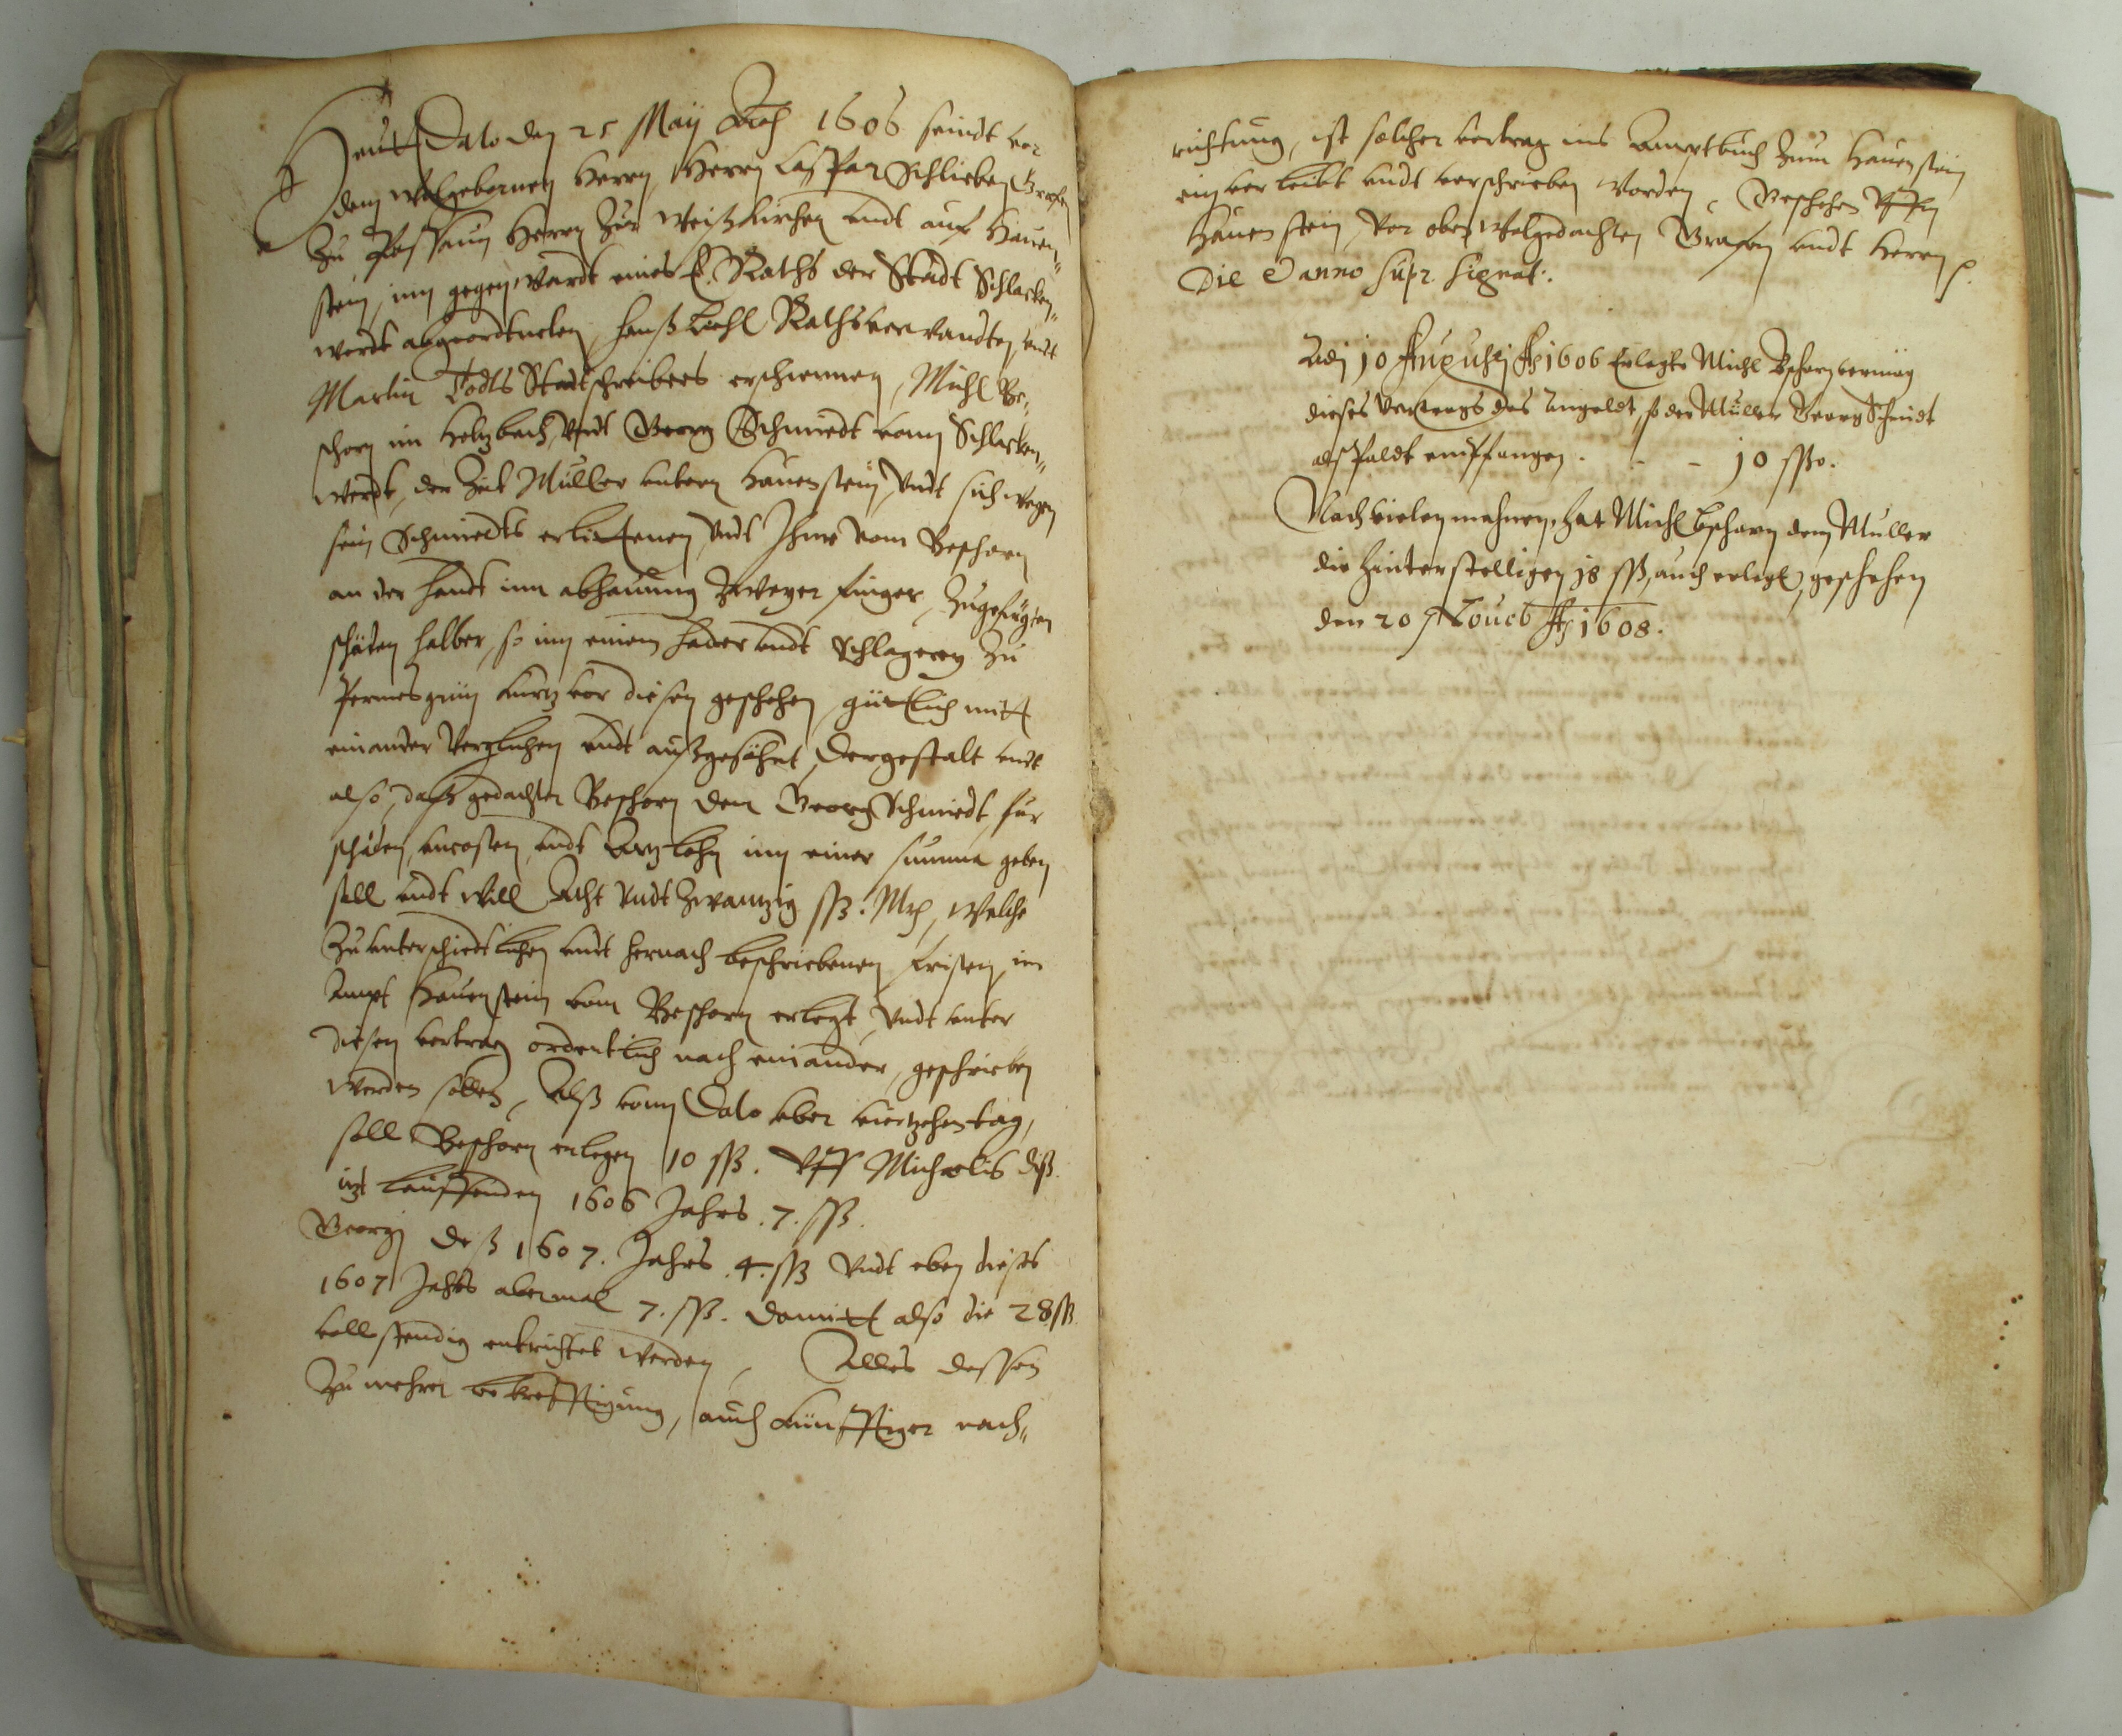 Heutt Dato den 25 Maÿ Anno 1606 seindt vor
dem Wolgebornen Herrn, Herrn Casspar Schlicken Grafen
zu Passaun Herrn zur Weißkirchen vndt auf Hauen„
stein, inn gegenwardt eines E. Raths der Stadt Schlacken„
werdt abgeordtneten, Hanß Rathsverwandten, vndt
Martin Todts Stadtschreibers erschiennen, Michl Be„
schorn im Holtzbach, vndt Georg Schmiedt vonn Schlacken„
werdt, der Zeit Müller vntern Hauenstein, vndt sich wegen
sein Schmiedts erlittenen, vndt Ihme vom Beschorn
an der Handt inn abhauung Zweyer finger, Zugefügten
schäden halber, so inn einem hader vndt schlagerey zu
Permesgrün kurtz vor diesen geschehen, güttlich mitt
einander verglichen vndt außgesöhnt, Dergestalt vndt
also, daß gedachter Beschorn dem Georg Schmiedt für
schäden, vncosten, vndt Artzlohn inn einer summa geben
soll vndt will Acht vndt Zwantzig ßß. Mß, welche
zu vnterschiedtlichen vndt hernach beschriebenen fristen, im
Ampt Hauenstein vom Beschorn erlegt, vndt vnter
diesen vertrag ordentlich nach einander, geschrieben
werden sollen, Alß vonn Dato vber viertzehen tag,
soll Beschorn erlegen 10 ßß. Vff Michaelis diß
itzt lauffenden 1606 Jahrs .7. ßß.
Georgj deß 1607. Jahrs .4. ßß vndt eben dieses
1607 Jahrs abermal 7. ßß. damitt also die 28 ßß
vollstendig entrichtet werden, Alles dessen
zu mehrer bekrefftigung, auch künfftiger nach„
richtung, ist solcher vertrag ins Amptbuch zum Hauenstein
ein verleibt vndt verschrieben worden, Geschehen Vffn
Hauenstein, vor oben wolgedachten Grafen vndt Herrn
Die & anno supr. signat:.
Adj 10 Augustj Ao 1606 Erlegte Michl Bschorn vermög
dieses vertrags das Angeldt, so der Müller Georg Schmidt
alspaldt empffangen. - - 10 ßßo.
Nach vielen mahnen, hat Michl Bschorn dem Müller
die hinterstelligen 18 ßß, auch erlegt, geschehen
den 20 Novemb Ao 1608.